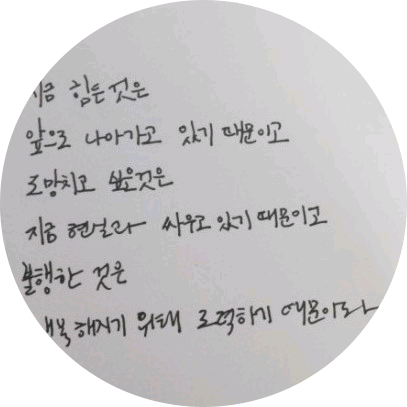 지금 힘든 것은
앞으로 나아가고 있기 때문이고
도망치고 싶은것은
지금 현실과 싸우고 있기 때문이고
불행한 것은
행복해지기 위해 노력하기 때문이라